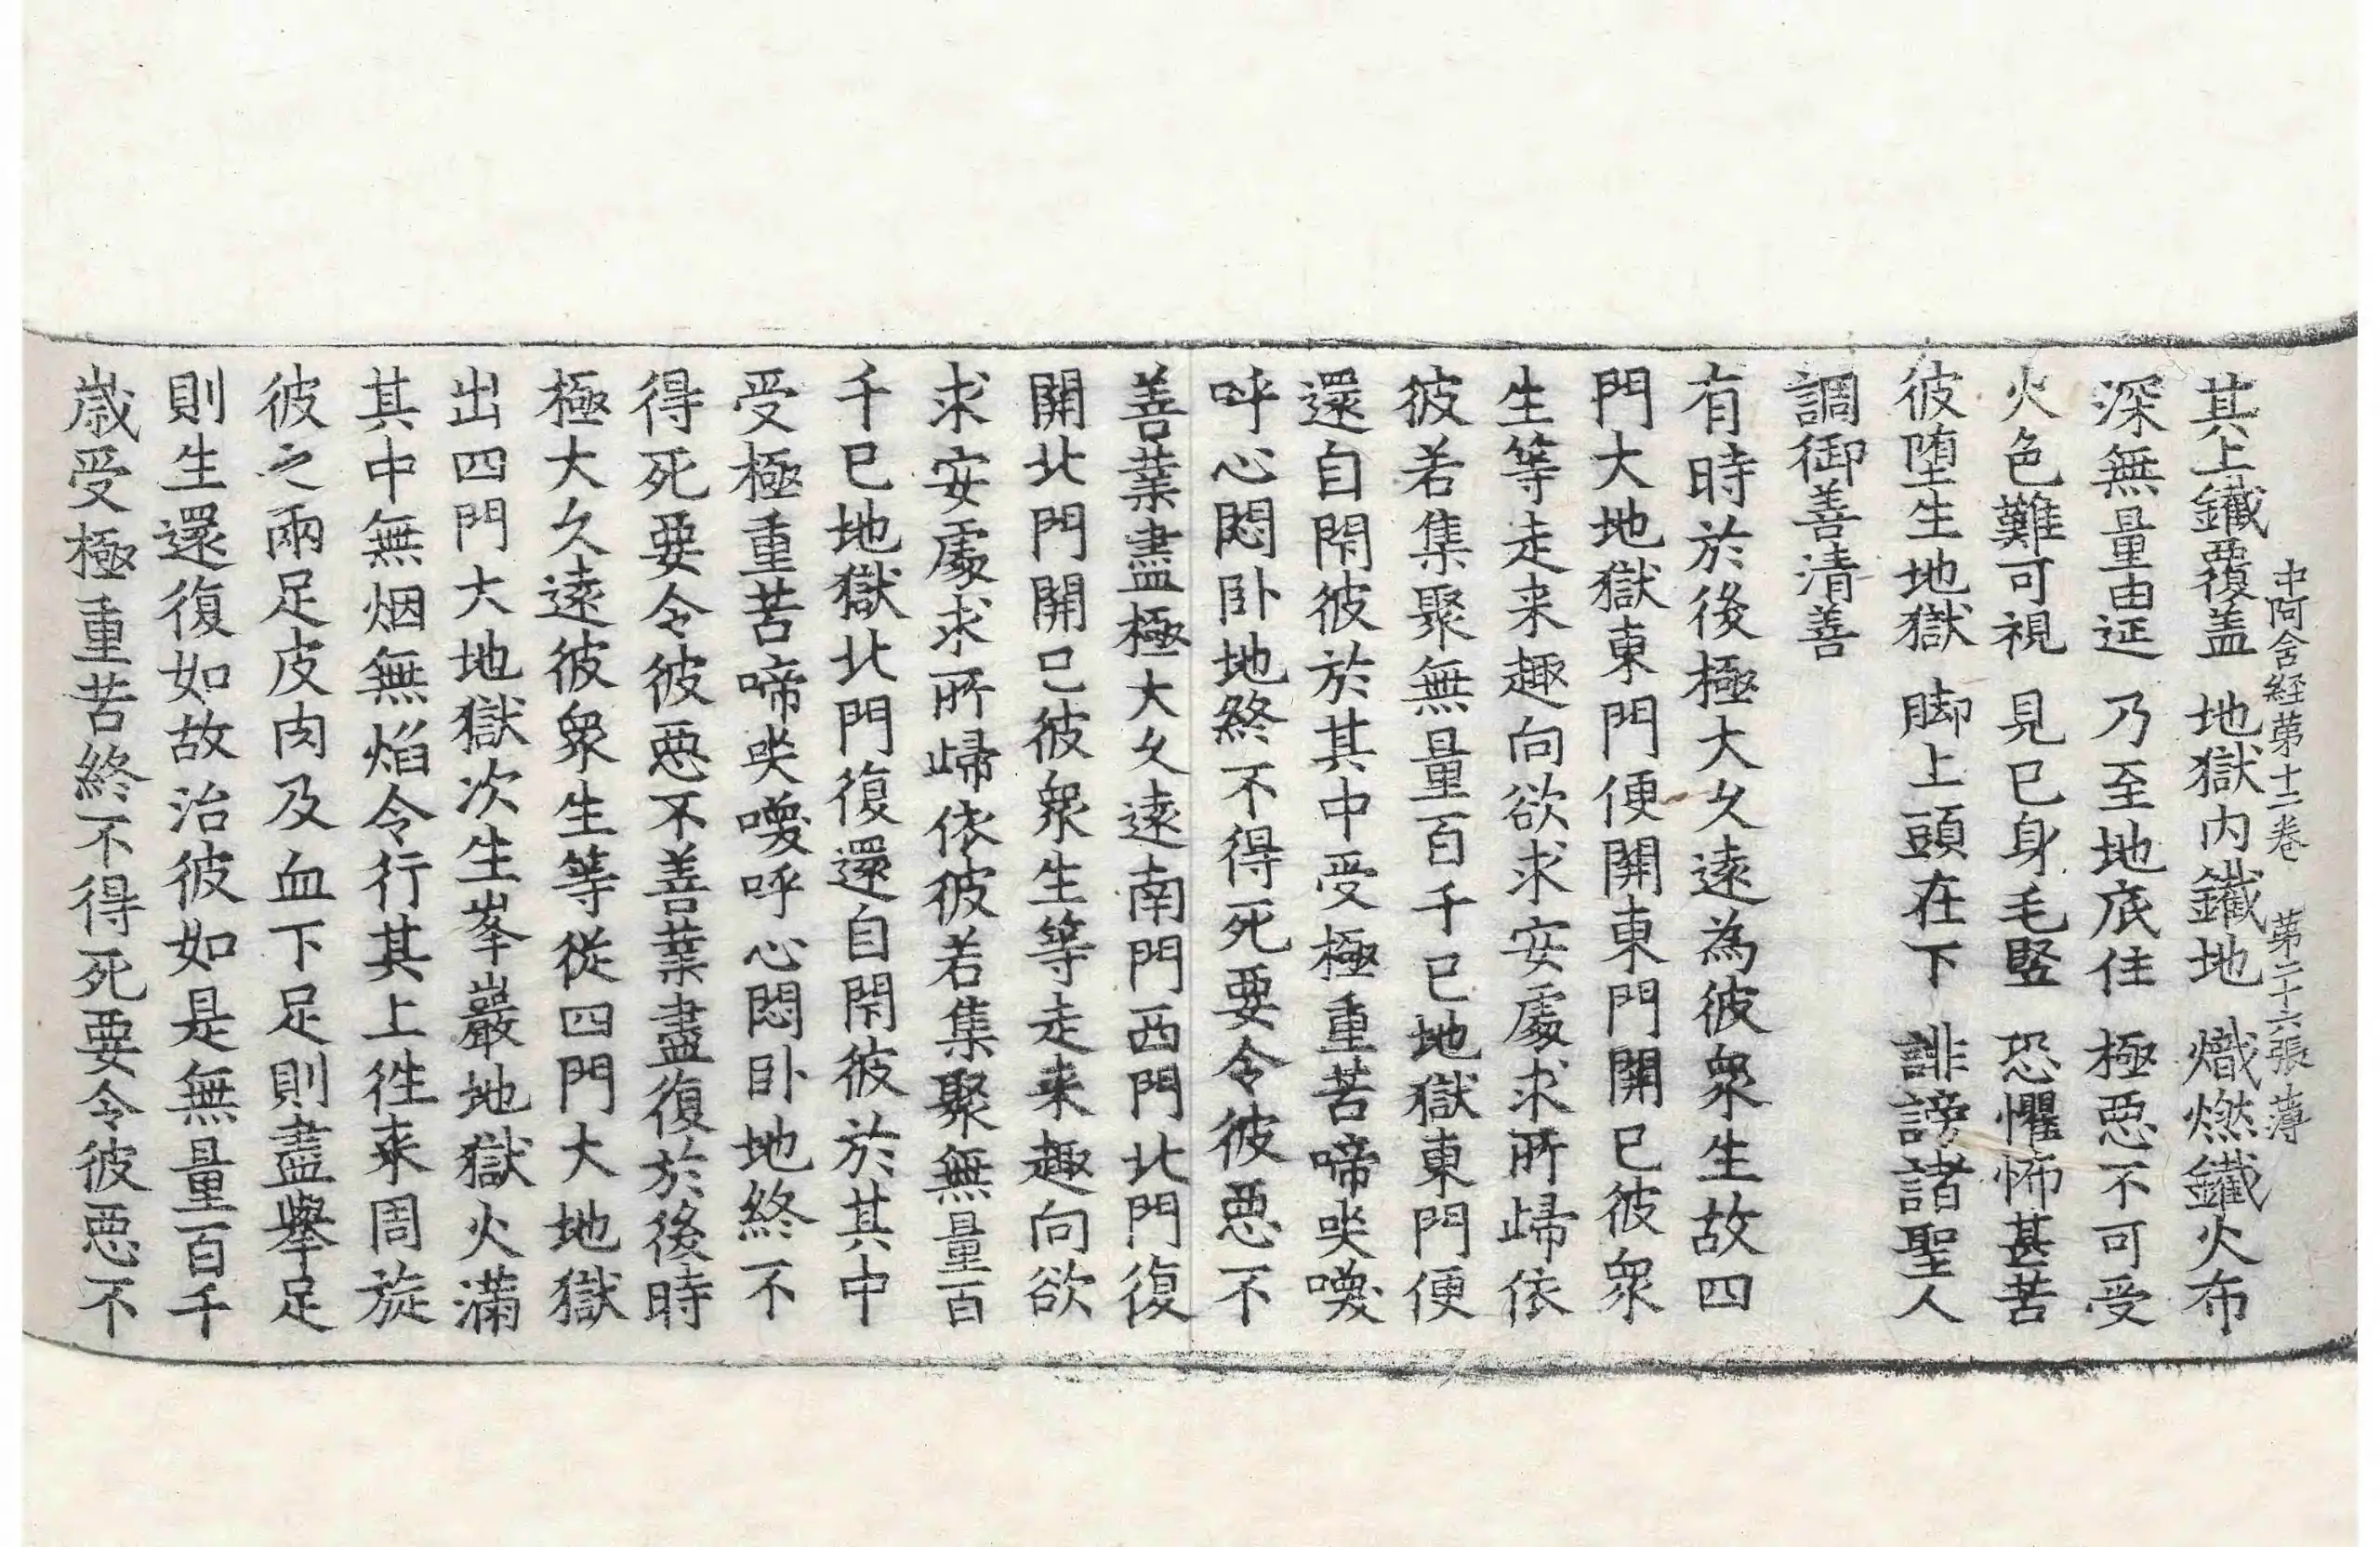 中阿含経第十二卷　第二十六張　薄
其上鐵覆盖　地獄内鐵地　熾燃鐵火布
深無量由延　乃至地底住　極惡不可受
火色難可視　見已身毛竪　恐懼怖甚苦
彼堕生地獄　脚上頭在下　誹謗諸聖人
調御善清善
有時於後極大久遠為彼衆生故四
門大地獄東門便開東門開已彼衆
生等走来趣向欲求安處求所歸依
彼若集聚無量百千已地獄東門便
還自閇彼於其中受極重苦啼哭喚
呼心悶卧地終不得死要令彼惡不
善業盡極大久遠南門西門北門復
開北門開已彼衆生等走来趣向欲
求安處求所歸依彼若集聚無量百
千已地獄北門復還自閇彼於其中
受極重苦啼哭喚呼心悶卧地終不
得死要令彼惡不善業盡復於後時
極大久遠彼衆生等從四門大地獄
出四門大地獄次生峯巖地獄火滿
其中無烟無焰令行其上徃来周旋
彼之兩足皮肉及血下足則盡舉足
則生還復如故治彼如是無量百千
歳受極重苦終不得死要令彼惡不